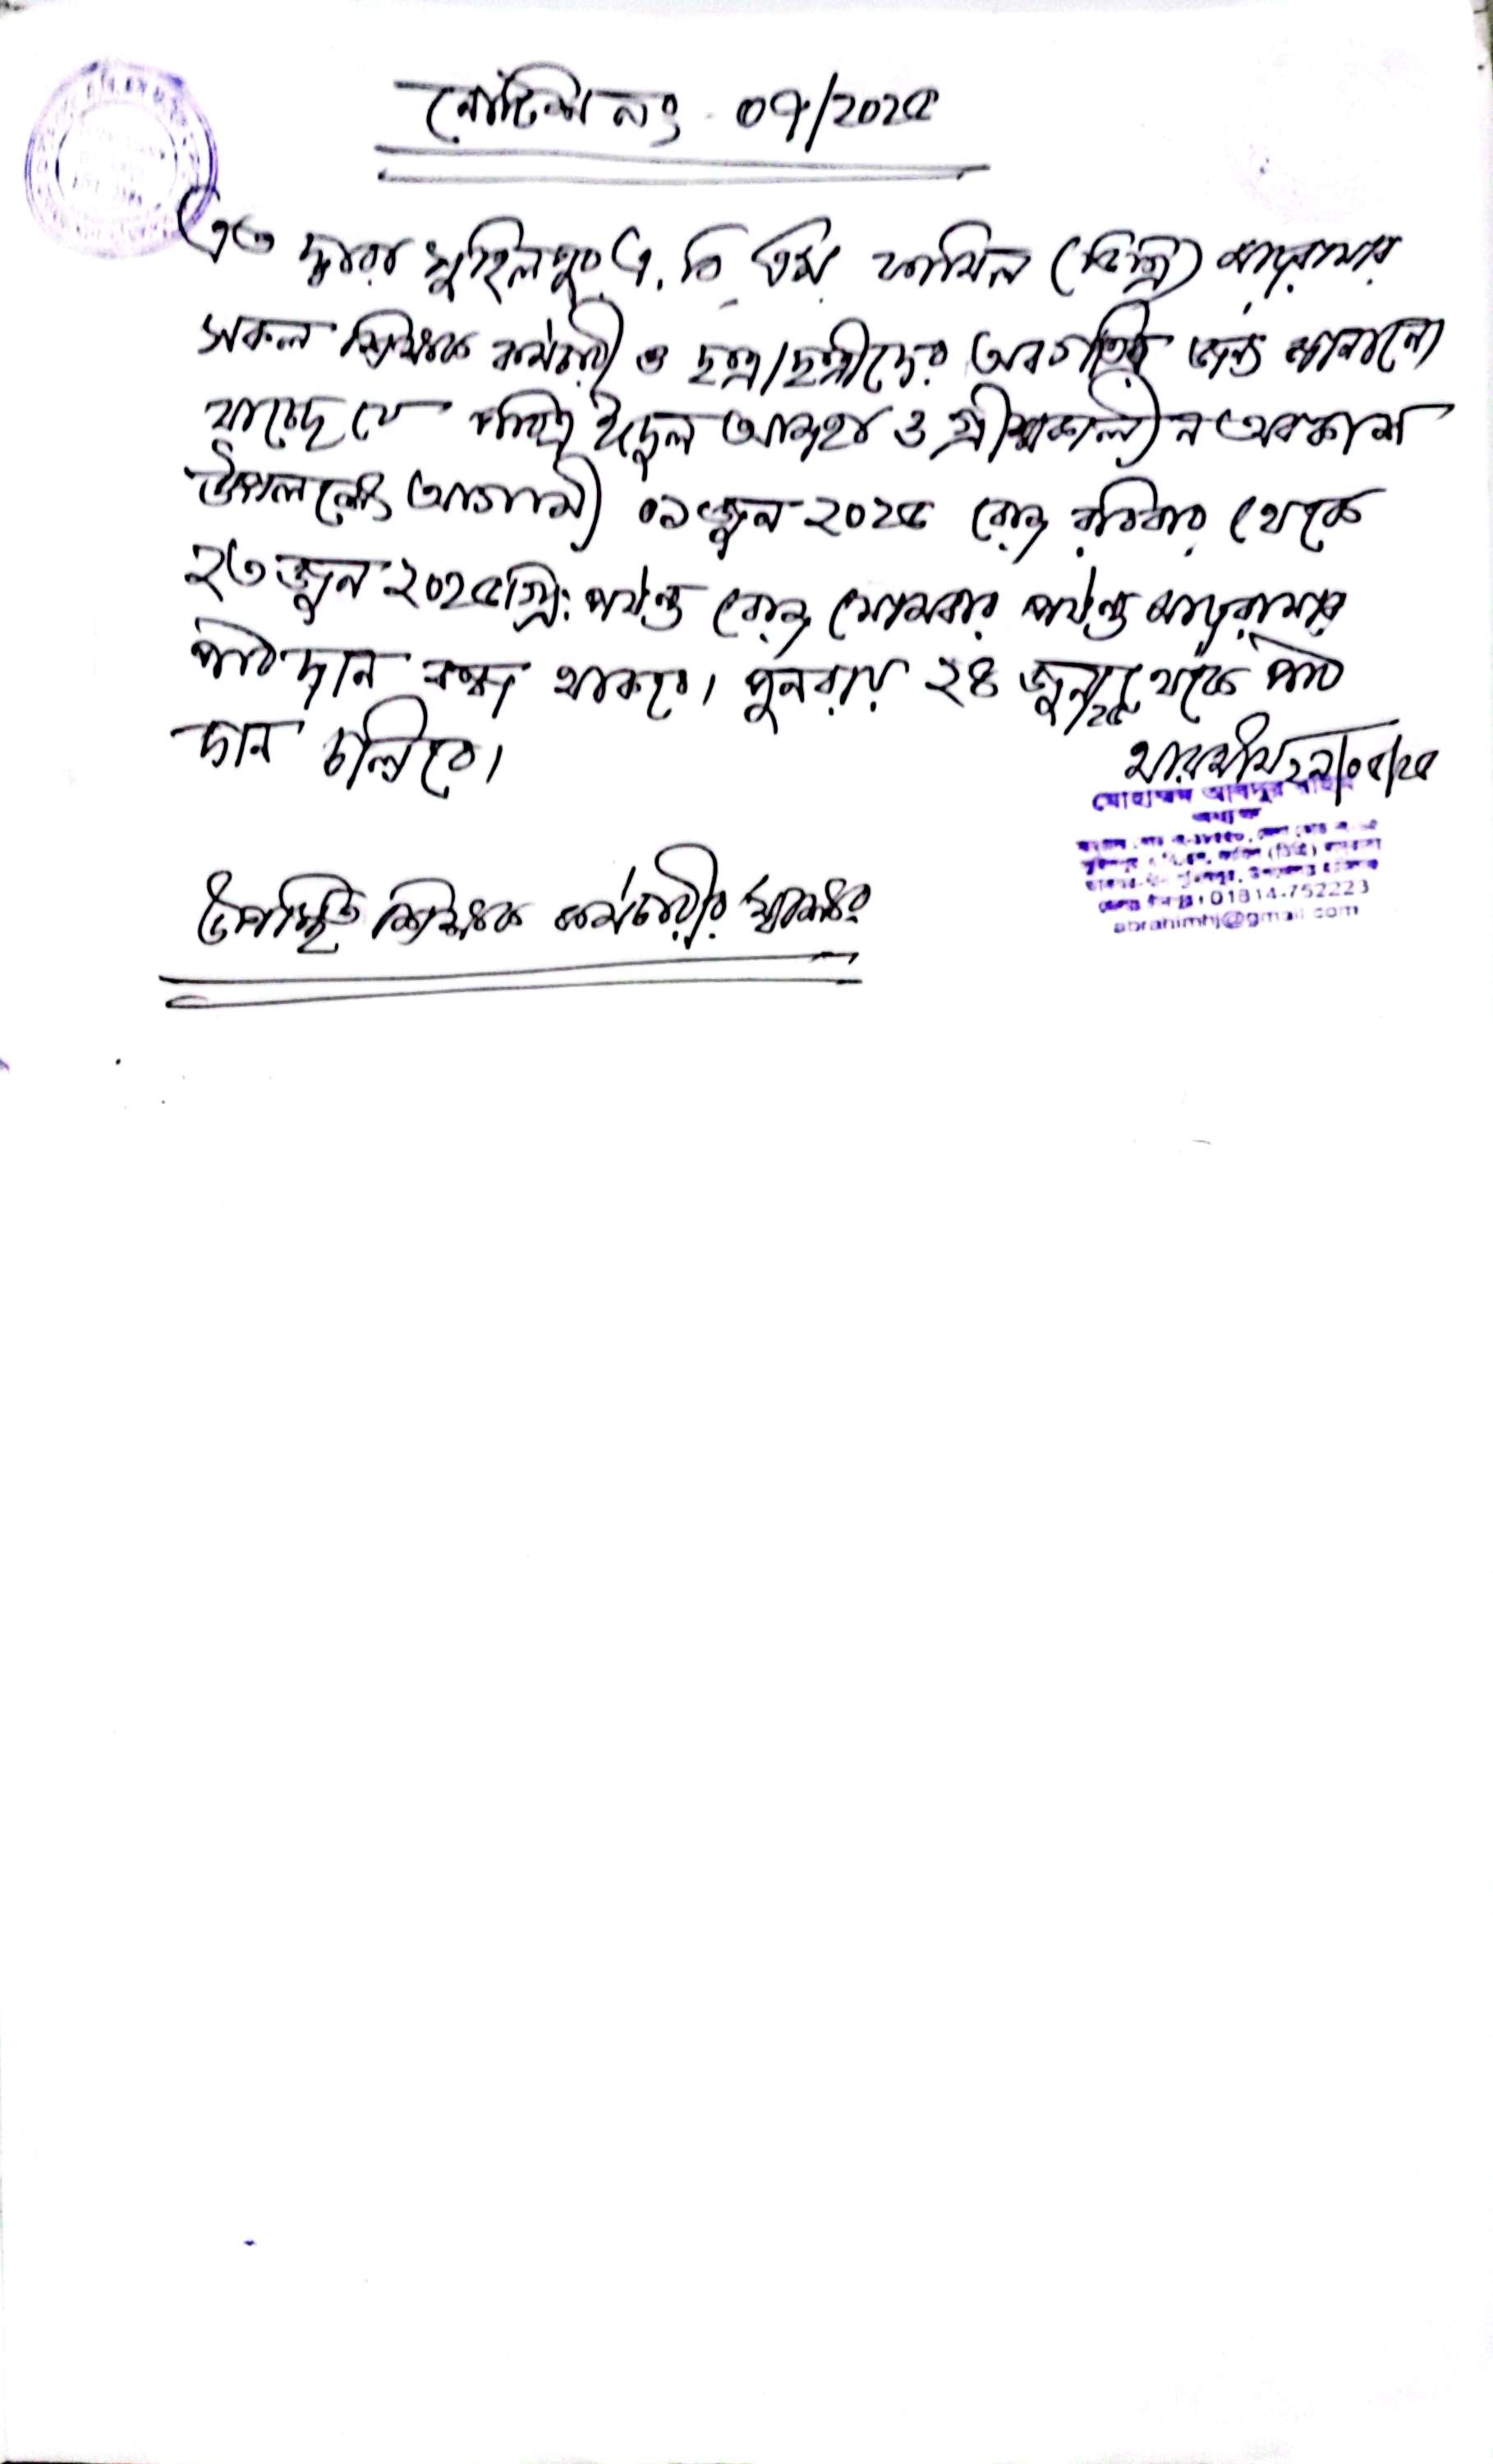 নোটিশ নং - ০৭/২০২৫
এত দ্বারা সুহিলপুর এ. বি. এম. ফাযিল (ডিগ্রি) মাদ্রাসার
সকল শিক্ষক কর্মচারী ও ছাত্র/ছাত্রীদের অবগতির জন্য জানানো
যাচ্ছে যে পবিত্র ঈদুল আযহা ও গ্রীষ্মকালীন অবকাশ
উপলক্ষ্যে আগামী ০১ জুন ২০২৫ রোজ রবিবার থেকে
২৩ জুন ২০২৫খ্রি: পর্যন্ত রোজ সোমবার পর্যন্ত মাদ্রাসার
পাঠদান বন্ধ থাকবে। পুনরায় ২৪ জুন/২৫ থেকে পাঠ
দান চলিবে।
২৯/০৫/২৫
মোহাম্মদ আবদুর রহিম
অধ্যক্ষ
০1814-752223
abrahimhj@gmail.com
উপস্থিত শিক্ষক কর্মচারীর স্বাক্ষর